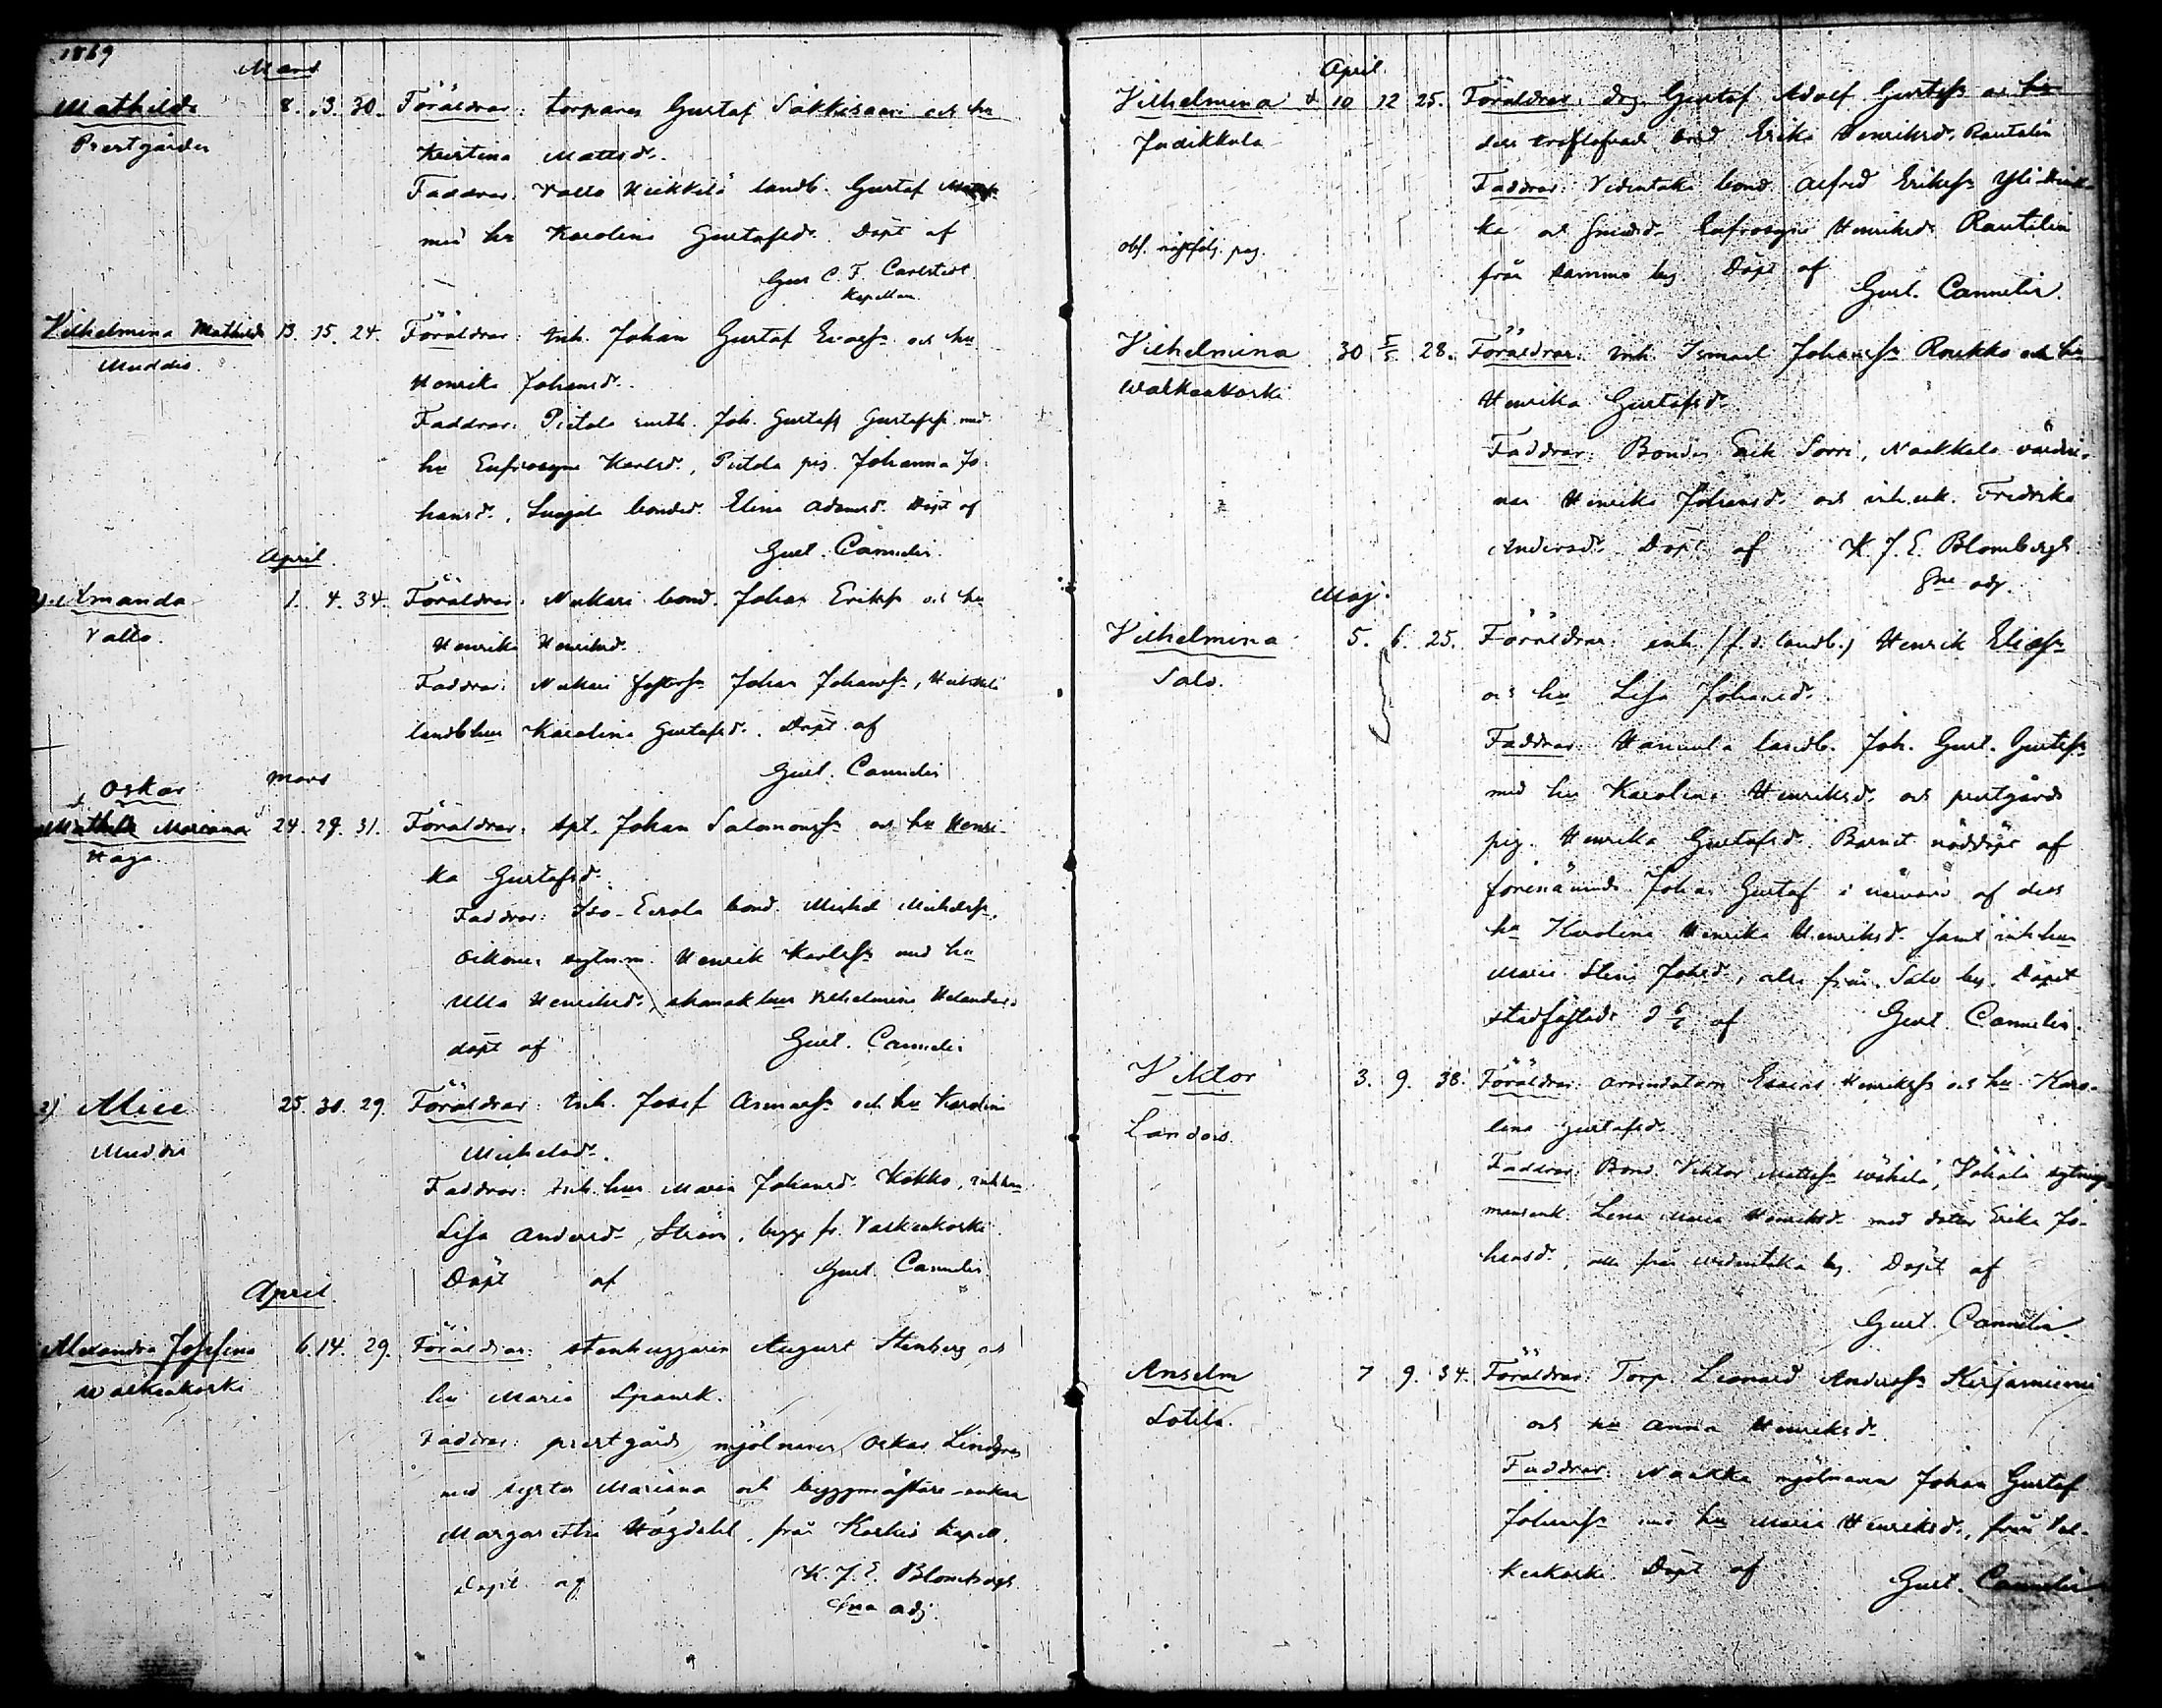 1869
Mars
Mathilda 8. 13. 30. Föräldrar: torparen Gustaf Säkkisaari och hu
Prestgården Kristina Mattsd.
Faddrar: Vallo Heikkilä landb. Gustaf
med hu Karolina Gustafsd. Döpt af
Gust C. F. Carlstedt
Kapellan.
Vilhelmina Mathilda 13. 15. 24. Föräldrar: Inh. Johan Gustaf och hu
Muddis. Henrika Johansd.
Faddrar: Pietola Joh. Gustaf Gustafss. med
hu Eufrosyne Karlsd., Pietola pig. Johanna Jo-
hansd., bonded. Elina Adamsd. Döpt af
Gust. Cannelin.
April.
Amanda 1. 4. 34. Föräldrar: Nukari bond. Johan Erikss. och hu
Vallo. Henrika Henriksd.
Faddrar: Nukari Johan Johanss., Heikkilä
landb.hu Karolina Gustafsd. Döpt af
Gust. Cannelin
Oskar mars
Mathilda Mariana 24. 29. 31. Föräldrar: Spt. Johan Salomonss. och hu Henri-
Haga. ka Gustafsd.
Faddrar: Iso-Eerola bond. Mickel Mickelss.,
Oikonen sytn.m. Henrik Karlss. med hu
Ulla Henriksd., Vilhelmina Helander.
döpt af Gust. Cannelin
2) Alice 25. 30. 29. Föräldrar: Inh. Josef och hu Karolina
Muddis Mickelsd.
Faddrar: Inh. hu Maria Johansd. Kokko, inh. hu
Lisa Andersd. Ström, begge fr. Valkeakoski.
Döpt af Gust. Cannelin.
April.
Alexandra Josefina 6. 14. 29. Föräldrar: stenhuggaren August Stenberg och
Walkeakoski hu Maria Spansk.
Faddrar: prestgårds mjölnaren Oskar Lindgren
med syster Mariana och byggmästare-enkan
Margaretha Högdahl, från Karkis kapell.
Döpt af K. J. E. Blombergh
adj.
April
Vilhelmina 10 12 25. Föräldrar: drg. Gustaf Adolf Gustafss. och
Judikkala dess trolofvade Erika Henriksd. Rautalin
Faddrar: Videntaka bond. Alfred Erikss. Yli-
ka och Eufrosyne Henriksd. Rautalin
obs. nästfölj. pag. från samma by. Döpt af
Gust. Cannelin.
Vilhelmina 30 28. Föräldrar: inh. Ismael Johanss. Roukko och hu
Walkeakoski Henrika Gustafsd.
Faddrar: Bonden Erik Sorri, Naakkala värdin-
nan Henrika Johansd. och inh.enk. Fredrika
Andersd. Döpt af K. J. E. Blombergh.
adj.
Maj.
Vilhelmina 5. 6. 25. Föräldrar: inh. (f.d. landb.) Henrik Eliass.
Salo. och hu Lisa Johansd.
Faddrar: Hannula landb. Joh. Gust. Gustafss.
med hu Karolina Henriksd. och prestgårds
pig. Henrika Gustafsd. Barnet nöddöpt af
förenämnde Johan Gustaf i närvaro af dess
hu Karolina Henrika Henriksd. samt inh. hu
Maria Stina Johsd., alla från Salo by. Döpet
stadfästades d 6/5 af Gust. Cannelin.
Viktor 3. 9. 38. Föräldrar: Esaias Henrikss. och hu Karo-
Landois. lina Gustafsd.
Faddrar: Bond. Viktor Mattss. Wähälä, Vähälä sytnings-
mansenk. Lena Maria Henriksd. med dotter Erika Jo-
hansd., alla från Videntaka by. Döpt af
Gust. Cannelin.
Anselm 7 9. 34. Föräldrar: Torp. Leonard Anderss. Kirjasniemi
Sotila. och hu Anna Henriksd.
Faddrar: Naakka mjölnaren Johan Gustaf
Johanss. med hu Maria Henriksd., från Val-
keakoski. Döpt af Gust. Cannelin